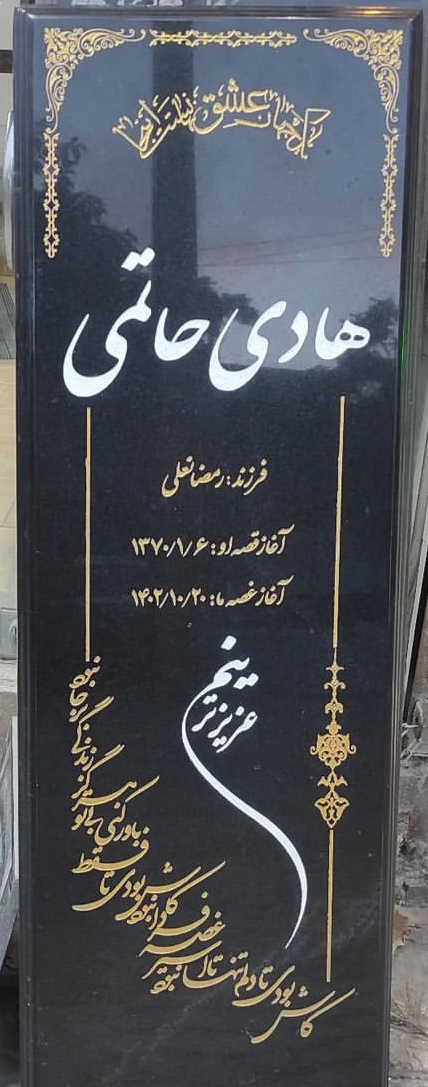 که جهان عشق است
هادی حاتمی
فرزند: رمضانعلی
آغاز قصه او: ۱۳۷۰/۱/۶
آغاز غصه ما: ۱۴۰۲/۱۰/۲۰
عزیزترینم
کاش بودی تا دلم تنها نبود
تا اسیر غصه فردا نبود
کاش بودی تا فقط باور کنی
بی تو هرگز زندگی زیبا نبود